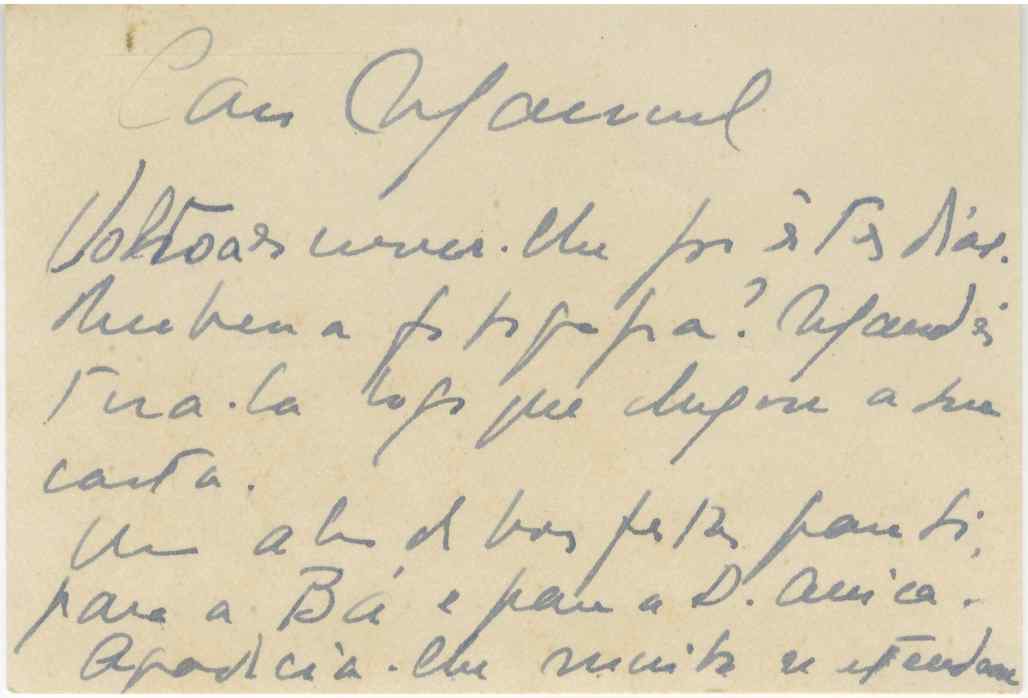 Caro Manuel
Volto a escrever-lhe por êstes dias.
Recebeu a fotografia? Mandei
tirá-la logo que chegou a sua
carta.
Um abraço de boas festas para si,
para a Bá e para a D. Anica.
Agradecia-lhe muito se